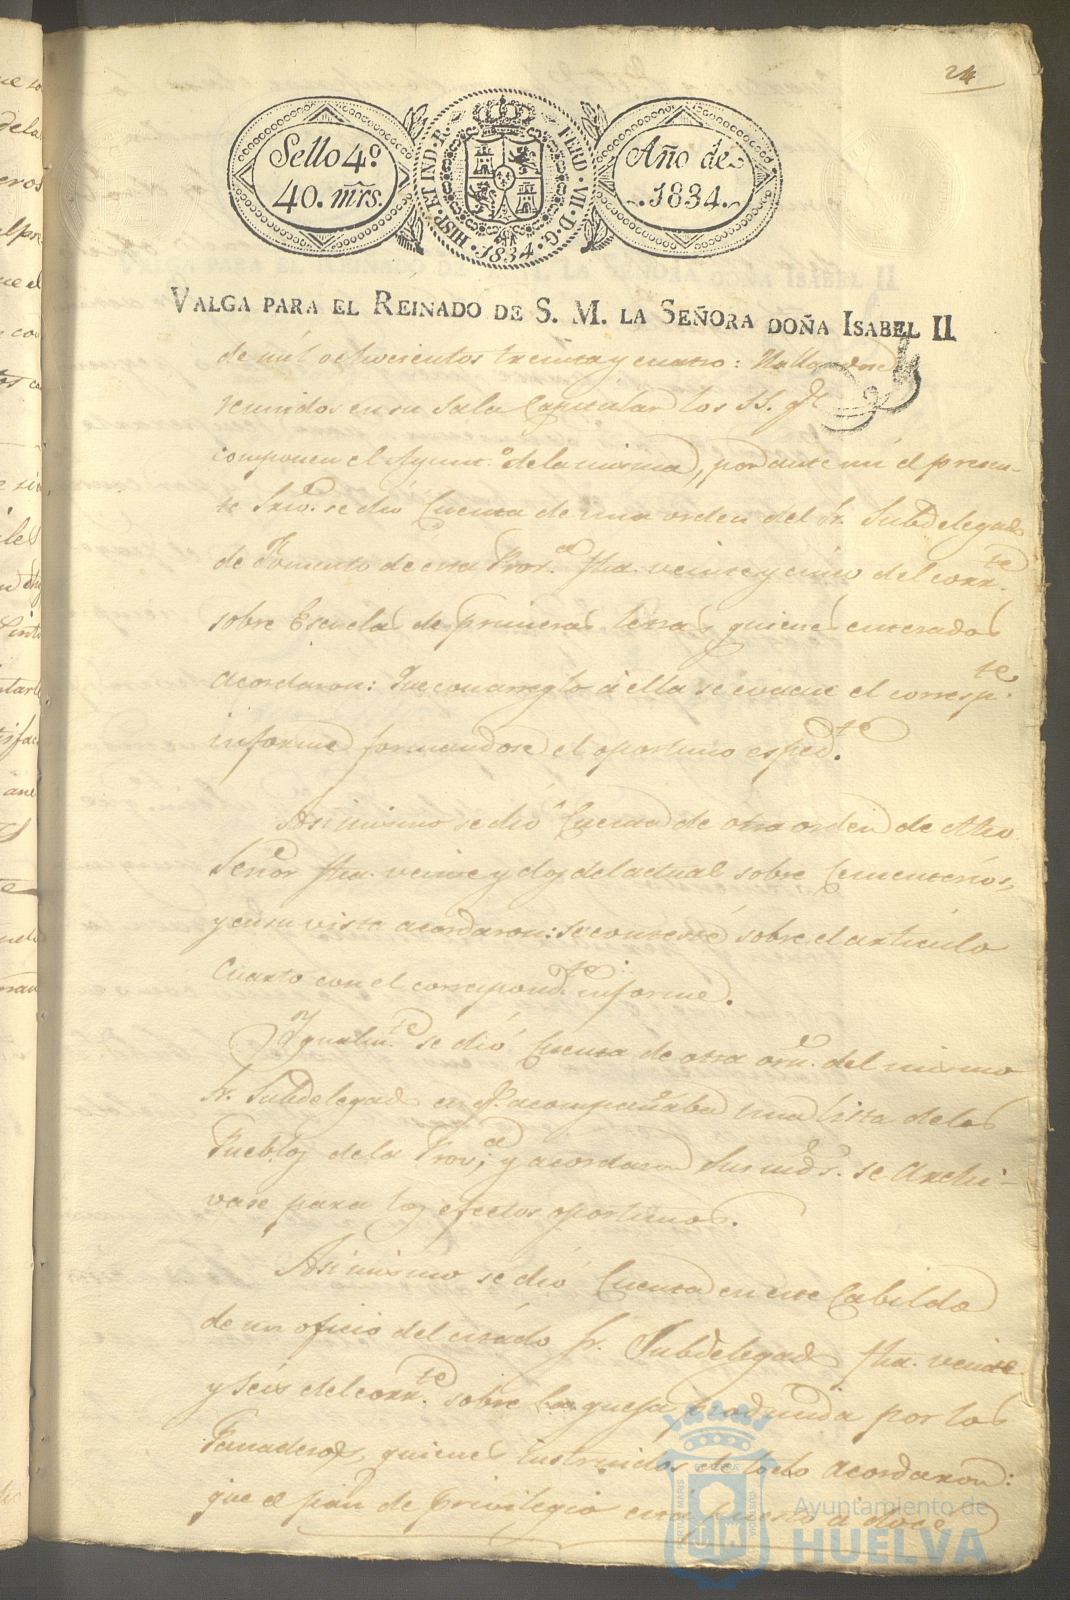 24
Sello 4º
40. mrs.
HISP. ET IND. R. FERD. VII. D. G. 1834
Año de
1834.
VALGA PARA EL REINADO DE S. M. LA SEÑORA DOÑA ISABEL II
de mil ochocientos treinta y cuatro: Hallandose
reunidos en su Sala Capitular los SS. qe
componen el Ayunt.o de la misma, por ante mi el presen-
te Srio. se dió Cuenta de una orden del Sr. Subdelegado
de Fomento de esta Prov.a fha. veinte y cinco del corr.te
sobre Escuelas de primeras letras, quienes enterados
acordaron: Que con arreglo á ella se evacue el corresp.te
informe formandose el oportuno esped.te
Asimismo se dió Cuenta de otra orden de dho
Señor fha. veinte y dos del actual sobre Cementerios,
y en su vista acordaron: se conteste sobre el articulo
Cuarto con el correspond.te informe.
Igualm.te se dió Cuenta de otra orn. del mismo
Sr. Subdelegado en q.e acompañaba una lista de los
Pueblos de la Prov.a; y acordaron Sus mds. se Archi-
vase para los efectos oportunos.
Asimismo se dió Cuenta en este Cabildo
de un oficio del citado Sr. Subdelegado fha. veinte
y seis del corr.te sobre la queja producida por los
Panaderos, quienes instruidos de todo acordaron:
que el pan de Privilegio está puesto a doce
Ayuntamiento de
HUELVA